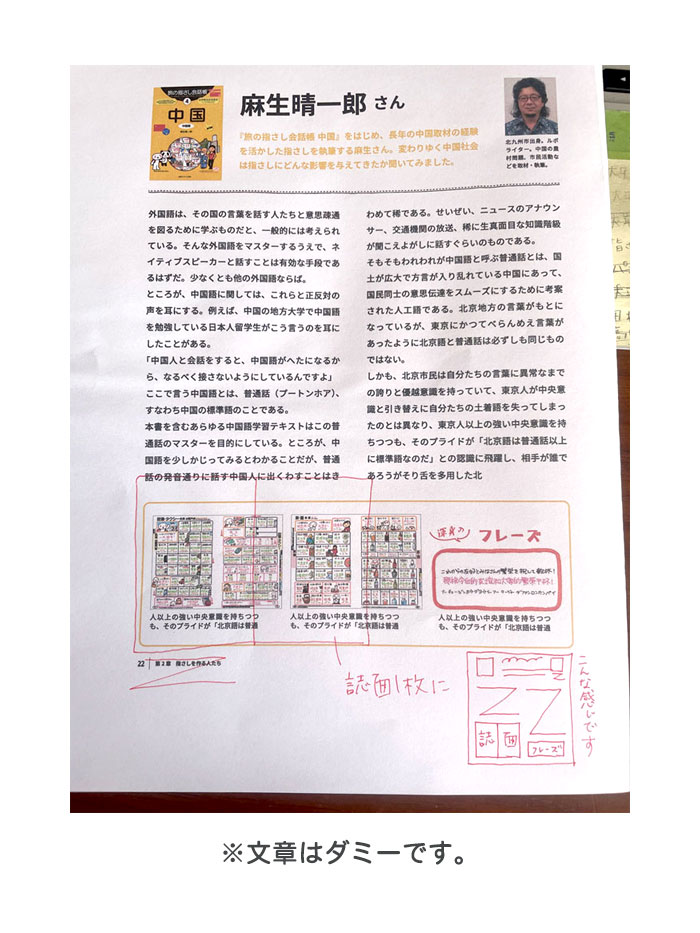 旅の指さし会話帳
4
中国
麻生晴一郎 さん
『旅の指さし会話帳 中国』をはじめ、長年の中国取材の経験
を活かした指さしを執筆する麻生さん。変わりゆく中国社会
は指さしにどんな影響を与えてきたか聞いてみました。
北九州市出身。ルポ
ライター。中国の農
村問題、市民活動な
どを取材・執筆。
外国語は、その国の言葉を話す人たちと意思疎通
を図るために学ぶものだと、一般的には考えられ
ている。そんな外国語をマスターするうえで、ネ
イティブスピーカーと話すことは有効な手段であ
るはずだ。少なくとも他の外国語ならば。
ところが、中国語に関しては、これらと正反対の
声を耳にする。例えば、中国の地方大学で中国語
を勉強している日本人留学生がこう言うのを耳に
したことがある。
「中国人と会話をすると、中国語がへたになるか
ら、なるべく接さないようにしているんですよ」
ここで言う中国語とは、普通話（プートンホア）、
すなわち中国の標準語のことである。
本書を含むあらゆる中国語学習テキストはこの普
通話のマスターを目的にしている。ところが、中
国語を少しかじってみるとわかることだが、普通
話の発音通りに話す中国人に出くわすことはき
わめて稀である。せいぜい、ニュースのアナウン
サー、交通機関の放送、稀に生真面目な知識階級
が聞こえよがしに話すぐらいのものである。
そもそもわれわれが中国語と呼ぶ普通話とは、国
土が広大で方言が入り乱れている中国にあって、
国民同士の意思伝達をスムーズにするために考案
された人工語である。北京地方の言葉がもとに
なっているが、東京にかつてべらんめえ言葉が
あったように北京語と普通話は必ずしも同じもの
ではない。
しかも、北京市民は自分たちの言葉に異常なまで
の誇りと優越意識を持っていて、東京人が中央意
識と引き替えに自分たちの土着語を失ってしまっ
たのとは異なり、東京人以上の強い中央意識を持
ちつつも、そのプライドが「北京語は普通話以上
に標準語なのだ」との認識に飛躍し、相手が誰で
あろうがそり舌を多用した北
渾身の
フレーズ
人以上の強い中央意識を持ちつつ
も、そのプライドが「北京語は普通
人以上の強い中央意識を持ちつつ
も、そのプライドが「北京語は普通
人以上の強い中央意識を持ちつつ
も、そのプライドが「北京語は普通
22 第2章 指さしを作る人たち
誌面1枚に
誌 面
フレーズ
こんな感じです
※文章はダミーです。